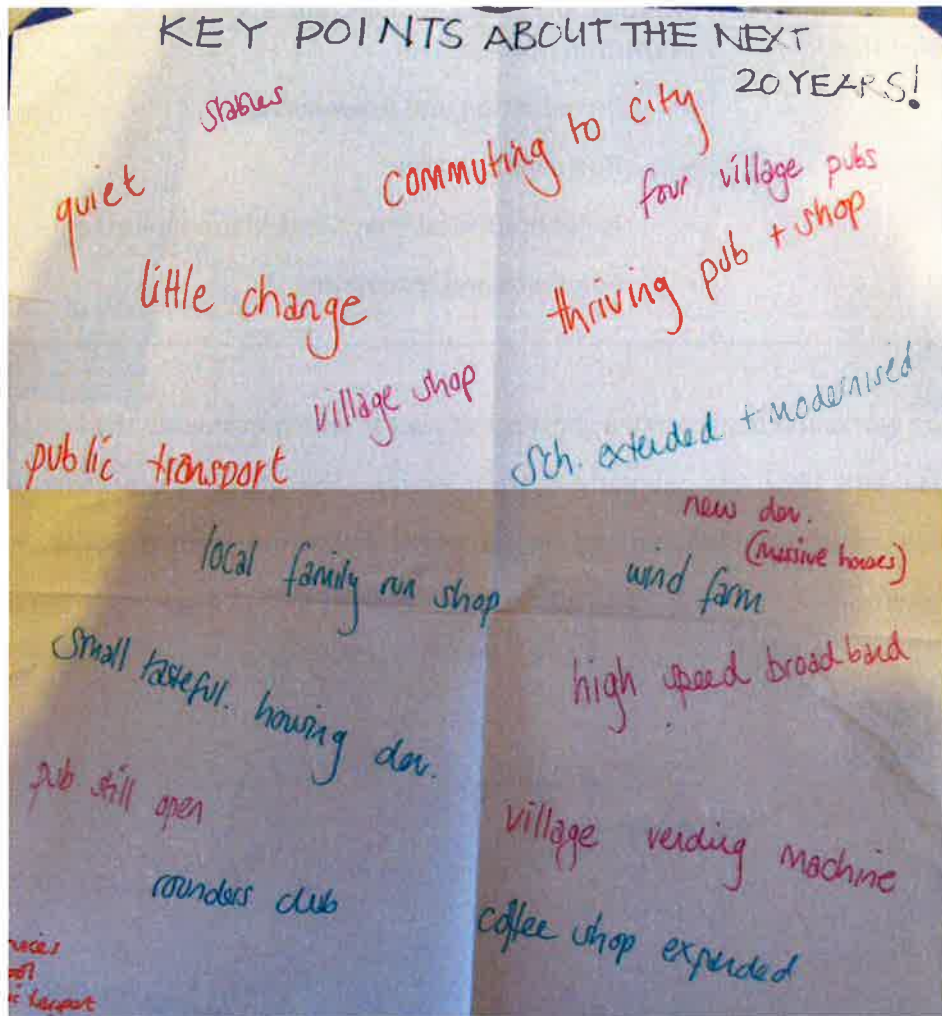 KEY POINTS ABOUT THE NEXT
20 YEARS!
stables
commuting to city
quiet
four village pubs
little change
thriving pub + shop
village shop
Sch. extended + modernised
public transport
new dev.
(massive houses)
local family run shop
wind farm
small tasteful. housing dev.
high speed broadband
pub still open
village vending machine
rounders club
coffee shop expanded